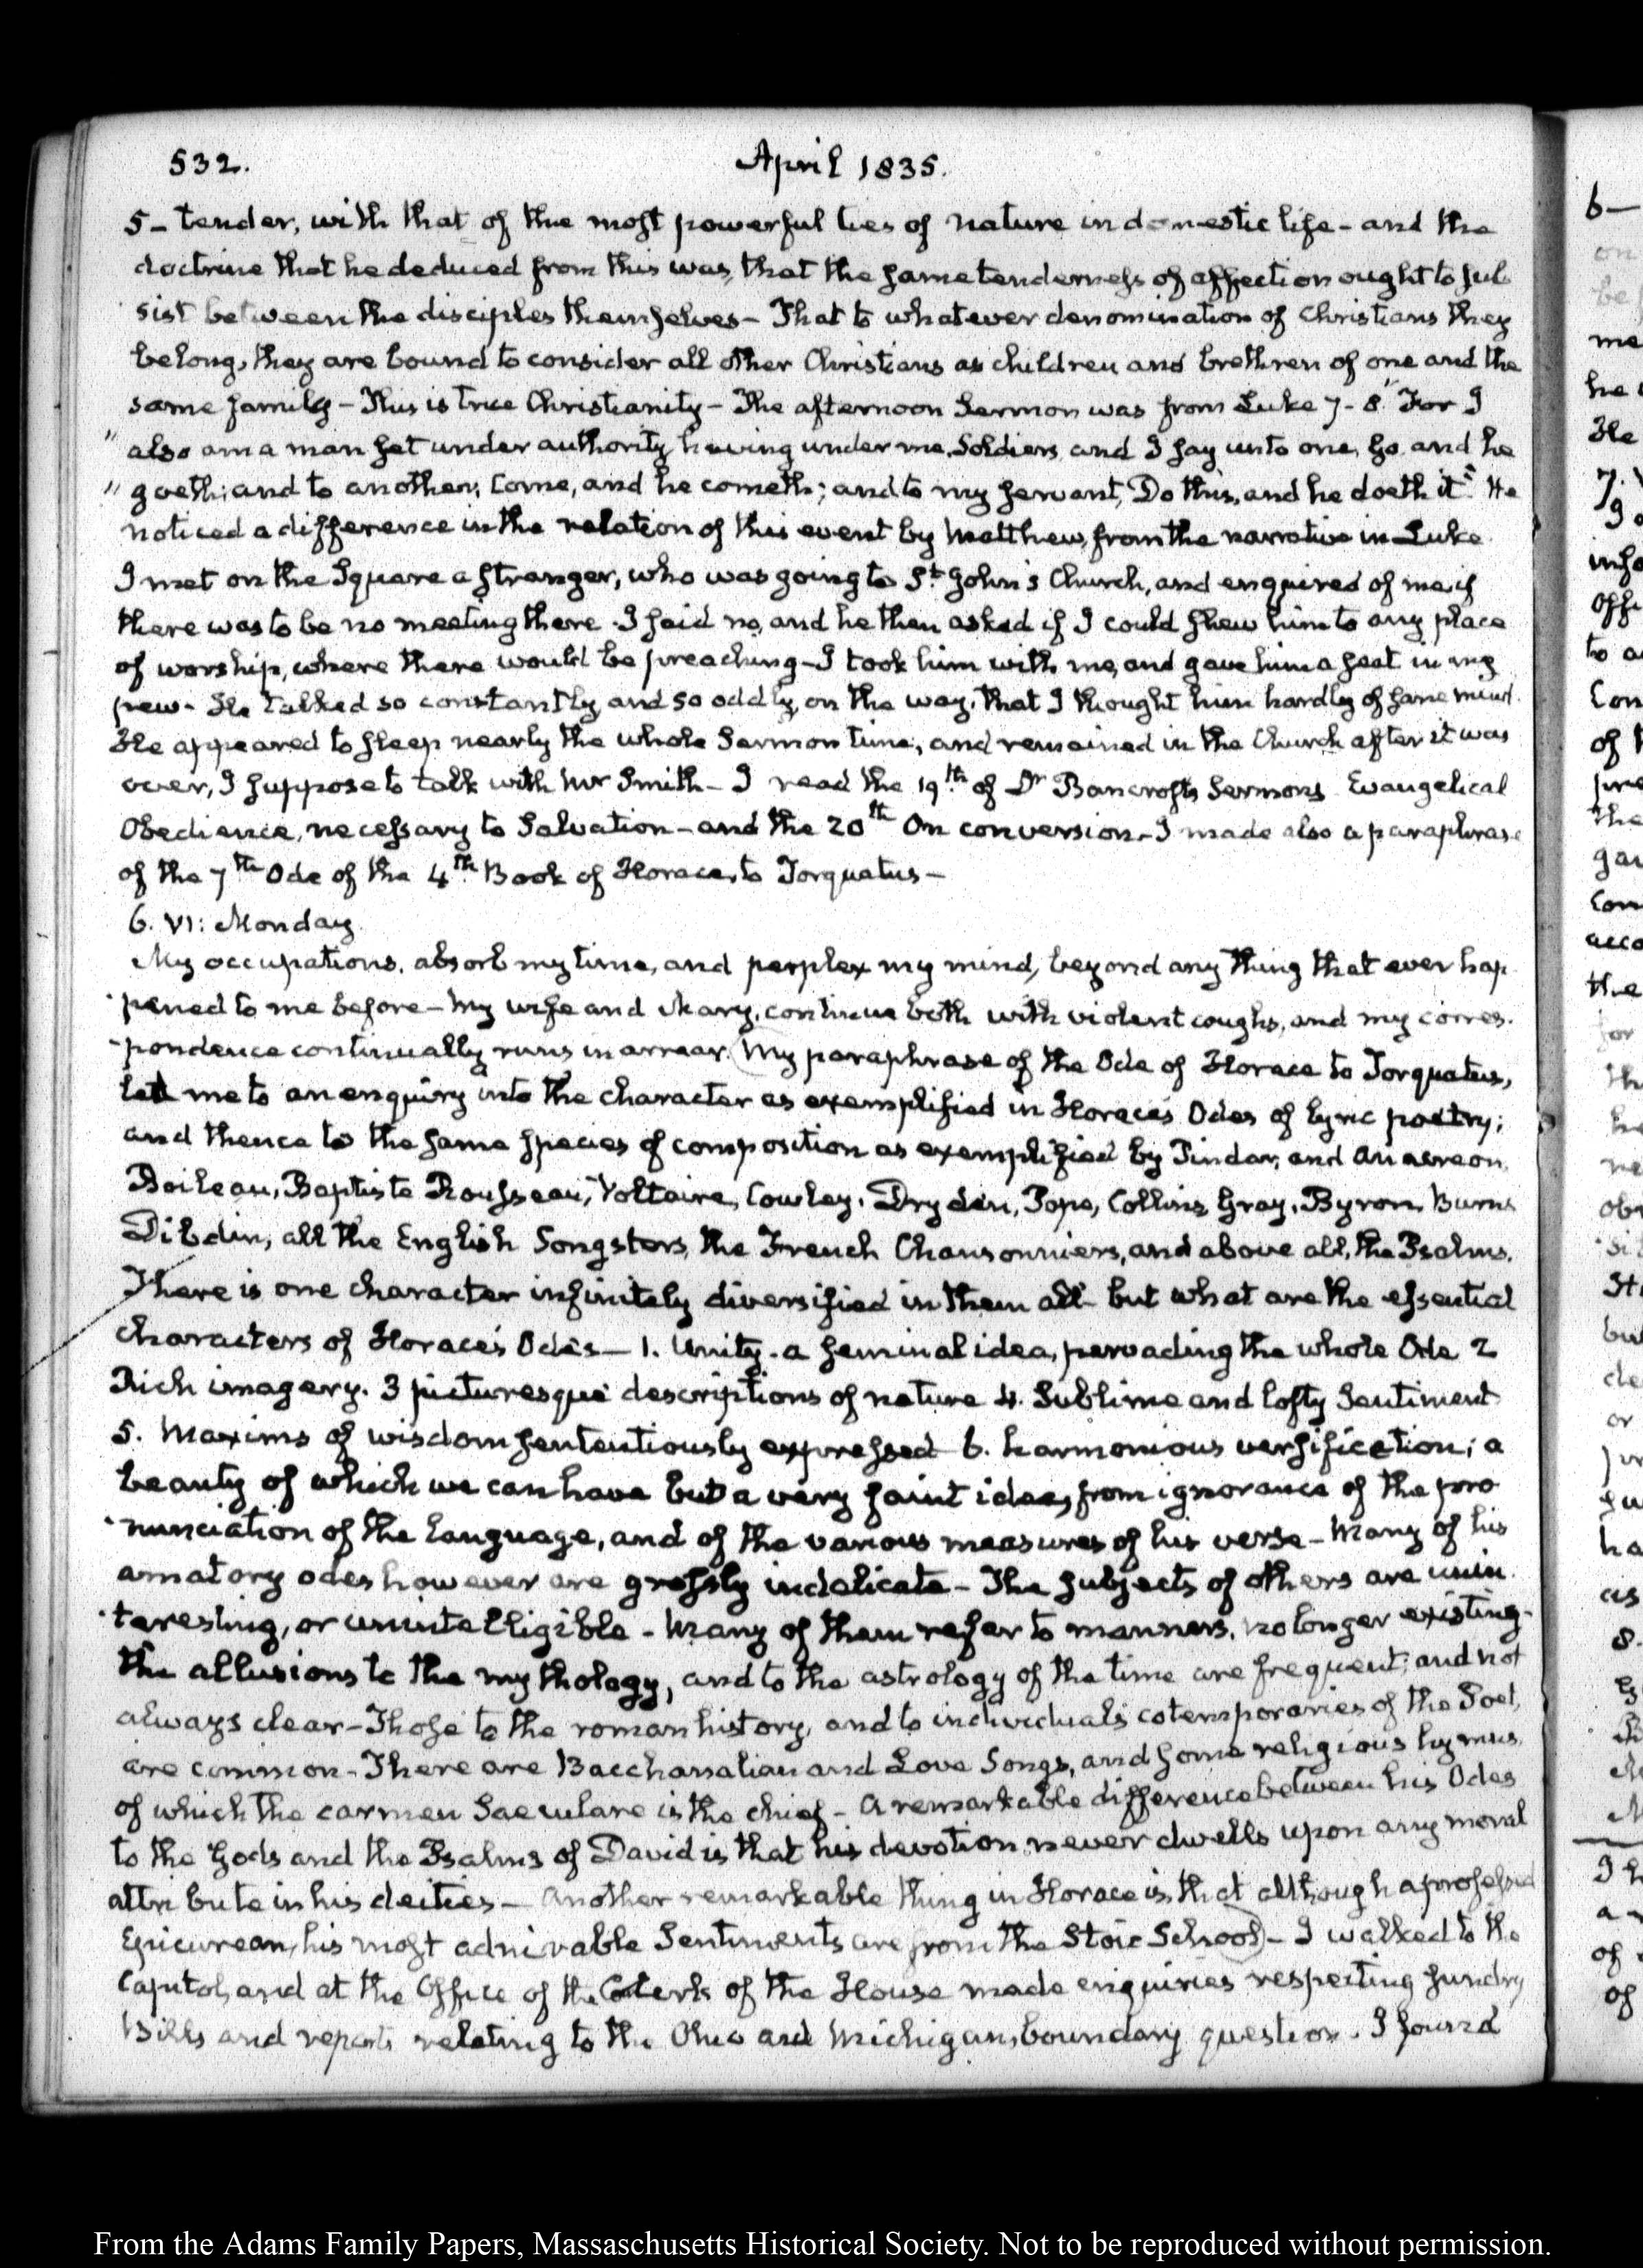 532.
April 1835.
5 - tender, with that of the most powerful ties of nature in domestic life - and the
doctrine that he deduced from this was, that the same tenderness of affection ought to sub
sist between the disciples themselves - That to whatever denomination of Christians they
belong, they are bound to consider all other Christians as children and brethren of one and the
same family - This is true Christianity - The afternoon Sermon was from Luke 7-8. "For I
" also am a man set under authority having under me, Soldiers, and I say unto one, Go, and he
" goeth; and to another, Come, and he cometh; and to my servant, Do this, and he doeth it." He
noticed a difference in the relation of this event by Matthew, from the narrative in Luke.
I met on the Square a stranger, who was going to St. John's Church, and enquired of me if
there was to be no meeting there. I said no, and he then asked if I could shew him to any place
of worship, where there would be preaching - I took him with me, and gave him a seat in my
pew. He talked so constantly and so oddly, on the way, that I thought him hardly of sane mind.
He appeared to sleep nearly the whole Sermon time, and remained in the Church after it was
over, I suppose to talk with Mr Smith - I read the 19th. of Dr Bancroft's Sermons Evangelical
Obedience, necessary to Salvation - and the 20th On conversion - I made also a paraphrase
of the 7th Ode of the 4th. Book of Horace, to Torquatus -
6. VI: Monday.
My occupations, absorb my time, and perplex my mind, beyond any thing that ever hap
pened to me before - My wife and Mary, continue both with violent coughs, and my corres.
pondence continually runs in arrear. (My paraphrase of the Ode of Horace to Torquatus,
led me to an enquiry into the character as exemplified in Horace's Odes of Lyric poetry;
and thence to the same species of composition as exemplified by Pindar, and Anacreon,
Boileau, Baptiste Rousseau, Voltaire, Cowley, Dryden, Pope, Collins, Gray, Byron, Burns
Dibdin, all the English Songsters, the French Chansonniers, and above all, the Psalms.
There is one character infinitely diversified in them all - but what are the essential
characters of Horace's Odes - 1. Unity. a seminal idea, pervading the whole Ode 2
Rich imagery. 3 picturesque descriptions of nature 4. Sublime and lofty Sentiment
5. Maxims of wisdom sententiously expressed 6. harmonious versification; a
beauty of which we can have but a very faint idea, from ignorance of the pro
nunciation of the language, and of the various measures of his verse - Many of his
amatory odes however are grossly indelicate - The subjects of others are unin.
teresting, or unintelligible - Many of them refer to manners, no longer existing -
the allusions to the mythology, and to the astrology of the time are frequent; and not
always clear - Those to the roman history, and to individuals cotemporaries of the Poet,
are common - There are Bacchanalian and Love Songs, and some religious hymns,
of which the carmen Saeculare is the chief - A remarkable difference between his Odes
to the Gods and the Psalms of David is that his devotion never dwells upon any moral
attribute in his deities - Another remarkable thing in Horace is, that although a professed
Epicurean, his most admirable Sentiments are from the Stoic School) - I walked to the
Capitol, and at the Office of the Clerk of the House made enquiries respecting sundry
Bills and reports relating to the Ohio and Michigan, boundary question. I found
From the Adams Family Papers, Massachusetts Historical Society. Not to be reproduced without permission.